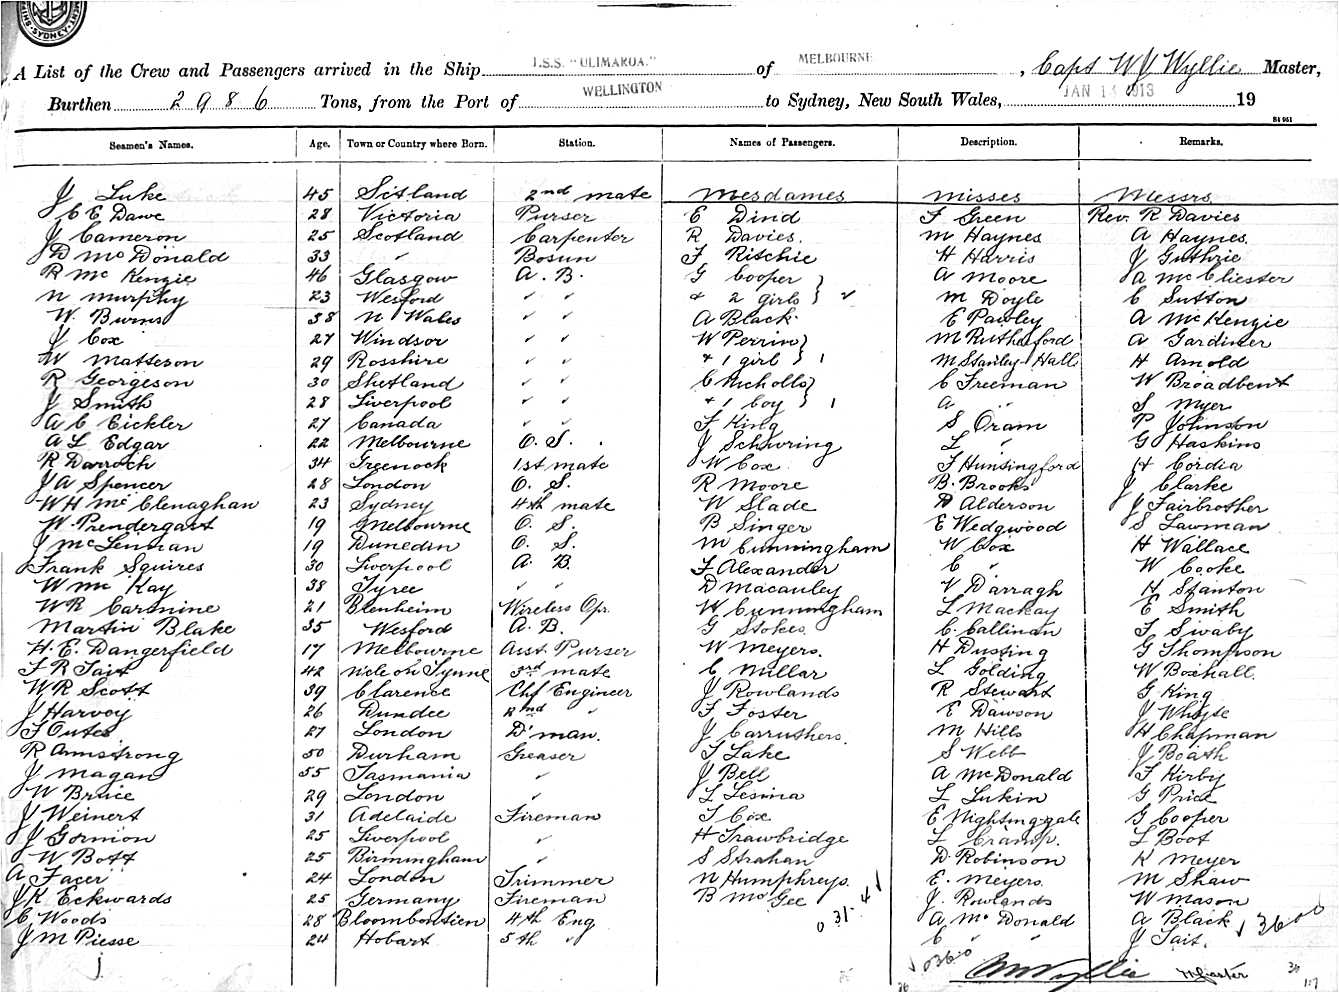 SYDNEY
A List of the Crew and Passengers arrived in the Ship T.S.S. "ULIMAROA." of MELBOURNE, Capt W J Wyllie Master,
Burthen 2986 Tons, from the Port of WELLINGTON to Sydney, New South Wales, JAN 1 1913 19
Seamen's Names. Age. Town or Country where Born. Station. Names of Passengers. Description. Remarks.
J Luke 45 Sctland 2nd mate Mesdames Misses Messrs
C E Dawe 28 Victoria Purser E Dind F Green Rev. R Davies
J Cameron 25 Scotland Carpenter R Davies. M Haynes A Haynes.
D McDonald 33 " Bosun F Ritchie H Harris J Guthrie
R McKenzie 46 Glasgow A. B. G Cooper } A Moore A McCliester
N Murphy 23 Wexford " " & 2 girls } M Doyle C Sutton
W. Burns 38 N Wales " " A Black E Pawley A McKenzie
J Cox 27 Windsor " " W Perrin } M Rutherford A Gardiner
W Matteson 29 Rosshire " " & 1 girl } 1 M Stanley-Hall H Arnold
R Georgeson 30 Shetland " " C Nicholls } C Freeman W Broadbent
J Smith 28 Liverpool " " & 1 boy } 1 A " S Myer
A C Eickler 27 Canada " " F King S Oram P Johnson
A L Edgar 22 Melbourne O. S. J Schuring L " G Haskins
R Darroch 34 Greenock 1st mate W Cox F Hunsingford H Cordia
J A Spencer 28 London O. S. R Moore B. Brooks J Clarke
W H McClenaghan 23 Sydney 4th mate W Slade D Alderson J Fairbrother
W. Prendergast 19 Melbourne O. S. B Singer E Wedgwood S Lawman
J McLennan 19 Dunedin O. S. M Cunningham W Cox H Wallace
Frank Squires 30 Liverpool A. B. F Alexander C " W Cooke
W McKay 38 Tyree " " D Macauley V Darragh H Stanton
W R Carsnine 21 Blenheim Wireless Opr. W Cunningham L Mackay E Smith
Martin Blake 35 Wexford A. B. G Stokes. C. Callinan F Swaby
H. E. Dangerfield 17 Melbourne Asst. Purser W Meyers. H Dusting G Thompson
F R Tait 42 Ncle on Tynne 3rd mate C Millar L Golding W Boxhall.
W R Scott 39 Clarence Chf Engineer J Rowlands R Stewart G King
J Harvey 26 Dundee 2nd " F Foster E Dawson J Whyte
F Outes 27 London D'man. J Carruthers. M Hills H Chapman
R Armstrong 50 Durham Greaser T Lake S Webb J Boath
J Magan 55 Tasmania " J Bell A McDonald F Kirby
W Bruce 29 London " L Lesina L Lukin G Price
J Weinert 31 Adelaide Fireman T Cox E Nightinggale G Cooper
J Gormion 25 Liverpool " H Trawbridge L Cramp. L Boot
W Bott 25 Birmingham " S Strahan D. Robinson K Meyer
A Facer 24 London Trimmer N Humphreys. E. Meyers. M Shaw
J K Eckwards 25 Germany Fireman B McGee J. Rowlands W Mason
C Woods 28 Bloombontien 4th Eng 0 31 - 4 A McDonald A Black 3600
J M Piesse 24 Hobart 5th " C " " J Tait.
0360 W Wyllie Master